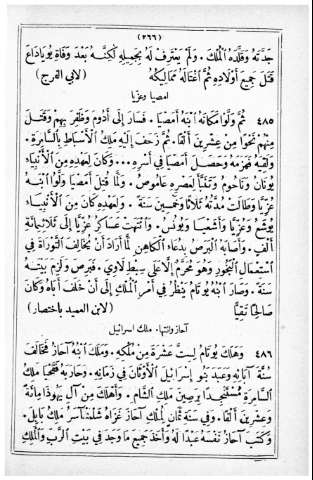 (٢٦٦)
جَدَّتَهُ وَقَلَّدَهُ ٱلْمُلْكَ. وَلَمْ يَعْتَرِفْ لَهُ بِجَمِيلِهِ لَكِنَّهُ بَعْدَ وَفَاةِ يُويَادَاعَ
قَتَلَ جَمِيعَ أَوْلَادِهِ ثُمَّ ٱغْتَالَهُ مَمَالِيكُهُ (لابي الفرج)
امصيا وعزيا
٤٨٥ ثُمَّ وَلَّوْا مَكَانَهُ ٱبْنَهُ أَمَصْيَا. فَسَارَ إِلَى أَدُومَ وَظَفِرَ بِهِمْ وَقَتَلَ
مِنْهُمْ نَحْوًا مِنْ عِشْرِينَ أَلْفًا. ثُمَّ زَحَفَ إِلَيْهِ مَلِكُ ٱلْأَسْبَاطِ بِٱلسَّامِرَةِ.
وَلَقِيَهُ فَهَزَمَهُ وَحَصَلَ أَمَصْيَا فِي أَسْرِهِ... وَكَانَ لِعَهْدِهِ مِنَ ٱلْأَنْبِيَاءِ
يُونَانُ وَنَاحُومُ وَتَنَبَّأَ لِعَصْرِهِ عَامُوصُ. وَلَمَّا قُتِلَ أَمَصْيَا وَلَّوُا ٱبْنَهُ
عُزِّيَّا وَطَالَتْ مُدَّتُهُ ثَلَاثًا وَخَمْسِينَ سَنَةً. وَلِعَهْدِهِ كَانَ مِنَ ٱلْأَنْبِيَاءِ
يُوشَعُ وَعُزِّيَّا وَأَشَعْيَا وَيُونُسُ. وَٱنْتَهَتْ عَسَاكِرُ عُزِّيَّا إِلَى ثَلَاثِمِائَةِ
أَلْفٍ. وَأَصَابَهُ ٱلْبَرَصُ بِدُعَاءِ ٱلْكَاهِنِ لَمَّا أَرَادَ أَنْ يُخَالِفَ ٱلتَّوْرَاةَ فِي
ٱسْتِعْمَالِ ٱلْبَخُورِ وَهُوَ مُحَرَّمٌ إِلَّا عَلَى سِبْطِ لَاوِي. فَبَرِصَ وَلَزِمَ بَيْتَهُ
سَنَةً. وَصَارَ ٱبْنُهُ يُوتَامُ يَنْظُرُ فِي أَمْرِ ٱلْمُلْكِ إِلَى أَنْ خَلَفَ أَبَاهُ وَكَانَ
صَالِحًا تَقِيًّا (لابن العميد باختصار)
آحاز وانتهاء ملك اسرائيل
٤٨٦ وَهَلَكَ يُوتَامُ لِسِتَّ عَشْرَةَ مِنْ مُلْكِهِ. وَمَلَكَ ٱبْنُهُ آحَازُ فَخَالَفَ
سُنَّةَ آبَائِهِ وَعَبَدَ بَنُو إِسْرَائِيلَ ٱلْأَوْثَانَ فِي زَمَانِهِ. وَحَارَبَهُ فَقْحِيَا مَلِكُ
ٱلسَّامِرَةِ مُسْتَنْجِدًا بِرَصِينَ مَلِكِ ٱلشَّامِ. وَأَهْلَكَ مِنْ آلِ يَهُوذَا مِائَةً
وَعِشْرِينَ أَلْفًا. وَفِي سَنَةِ ثَمَانٍ لِمُلْكِ آحَازَ غَزَاهُ شَلْمَنَأْسَرُ مَلِكُ بَابِلَ.
وَكَتَبَ آحَازُ نَفْسَهُ عَبْدًا لَهُ وَأَخَذَ جَمِيعَ مَا وُجِدَ فِي بَيْتِ ٱلرَّبِّ وَٱلْمَلِكِ